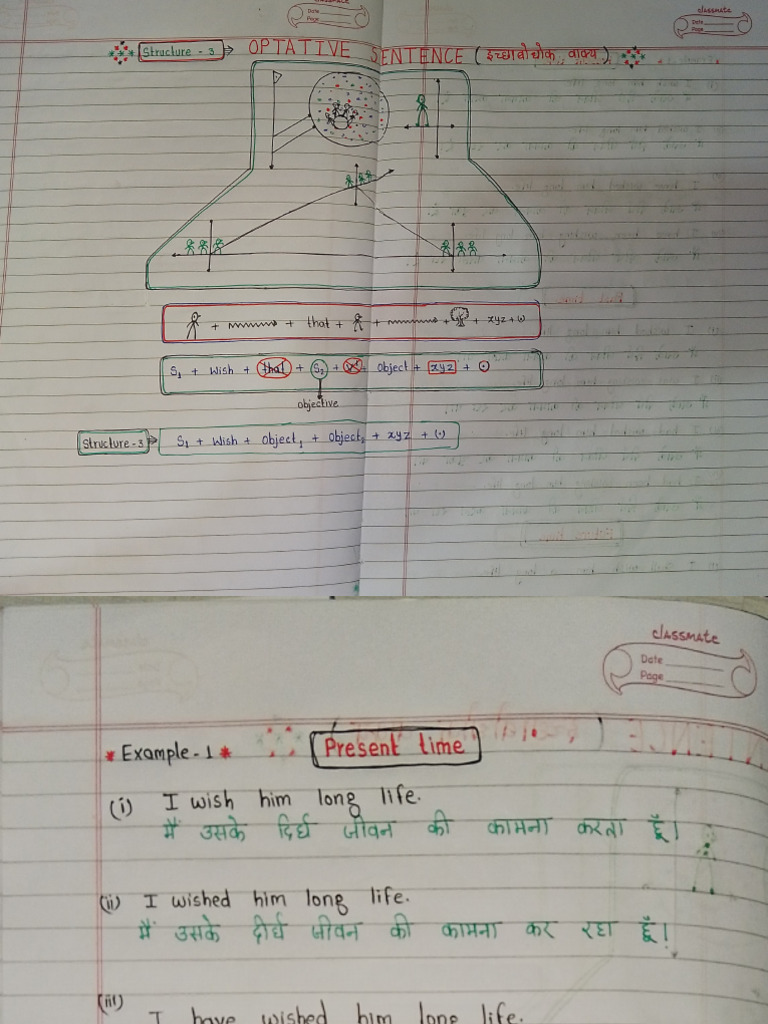 classmate
Date
Page
classmate
Date
Page
Structure - 3 → OPTATIVE SENTENCE ( इच्छावोचोक वाक्य )
+ + that + + + + xyz + ω
S₁ + Wish + that + S₂ + + Object + xyz + (.)
objective
Structure-3 S₁ + Wish + Object₁ + Object₂ + xyz + (.)
classmate
Date
Page
* Example - 1 * Present time
(i) I wish him long life.
मैं उसके दिर्घ जीवन की कामना करता हूँ।
(ii) I wished him long life.
मैं उसके दीर्घ जीवन की कामना कर रहा हूँ।
(iii) I have wished him long life.